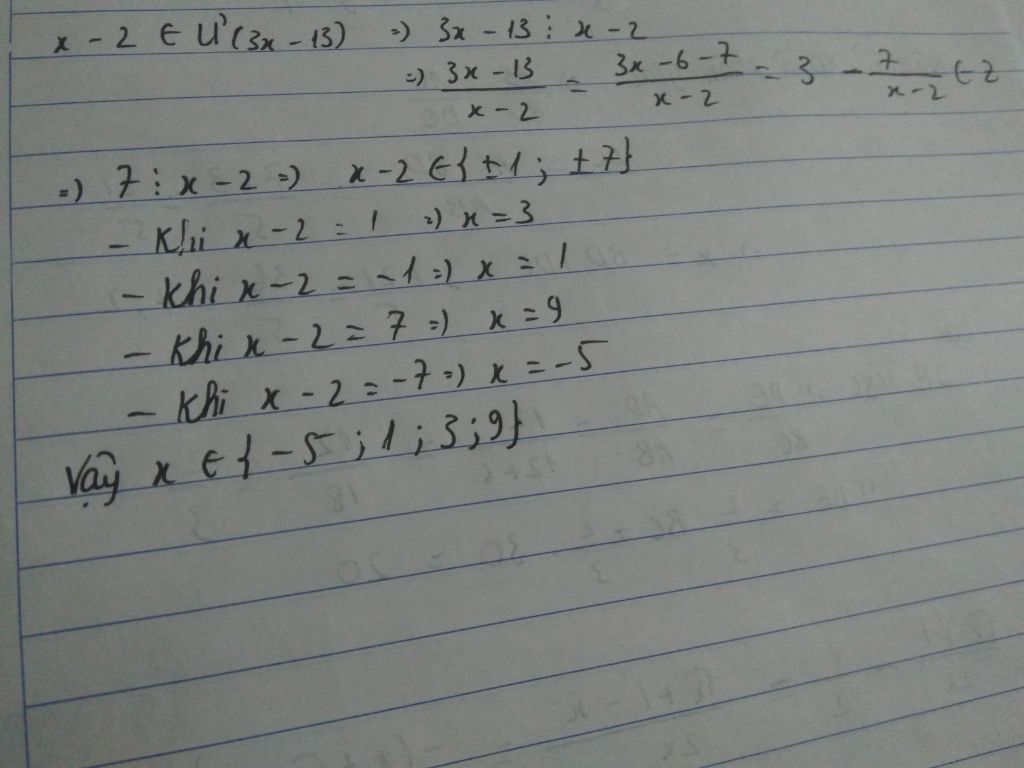 x - 2 ∈ Ư(3x - 13) => 3x - 13 ⋮ x - 2
=> \frac{3x - 13}{x - 2} = \frac{3x - 6 - 7}{x - 2} = 3 - \frac{7}{x - 2} ∈ Z
=> 7 ⋮ x - 2 => x - 2 ∈ { ±1 ; ±7 }
- Khi x - 2 = 1 => x = 3
- Khi x - 2 = -1 => x = 1
- Khi x - 2 = 7 => x = 9
- Khi x - 2 = -7 => x = -5
Vậy x ∈ { -5 ; 1 ; 3 ; 9 }